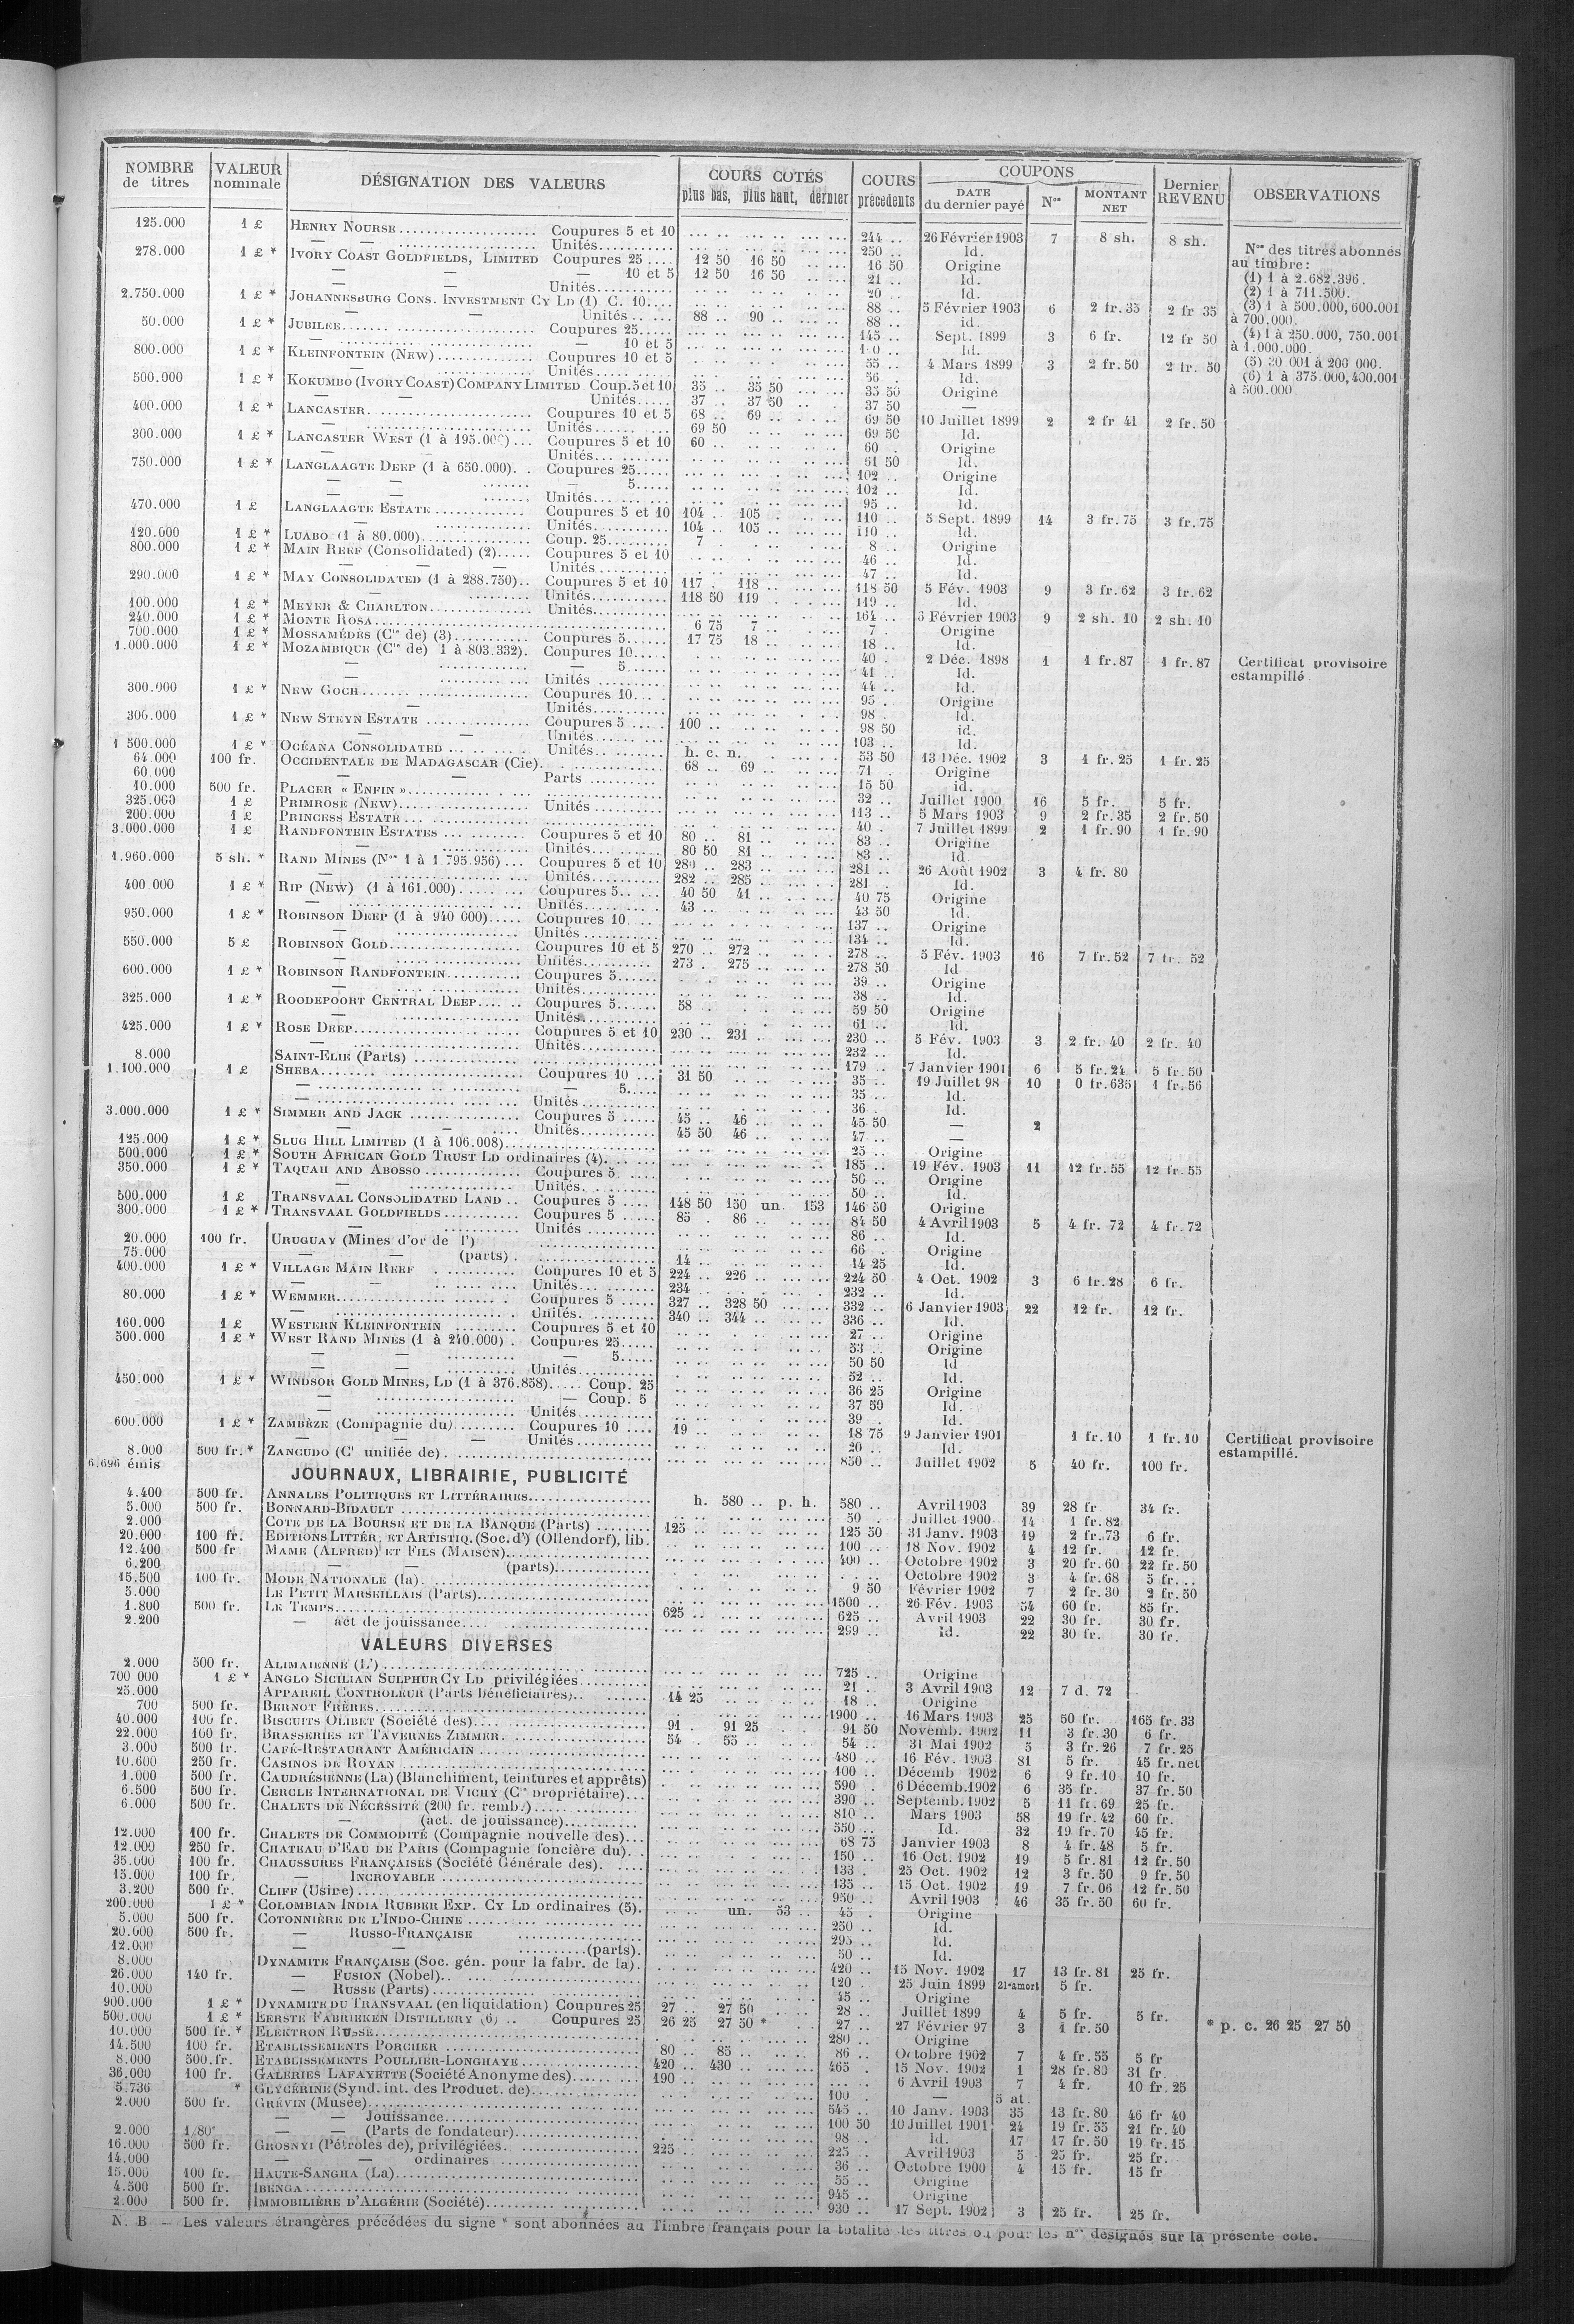 NOMBRE de titres | VALEUR nominale | DÉSIGNATION DES VALEURS | COURS COTÉS plus bas, plus haut, dernier | COURS précédents | COUPONS DATE du dernier payé | Nos | MONTANT NET | Dernier REVENU | OBSERVATIONS
125.000 1 £ HENRY NOURSE Coupures 5 et 10 244 .. 26 Février 1903 7 8 sh. 8 sh.
— — Unités 250 .. Id.
278.000 1 £ * IVORY COAST GOLDFIELDS, LIMITED Coupures 25 12 50 16 50 16 50 Origine
— — — 10 et 5 12 50 16 50 21 .. Id.
Unités 20 Id.
2.750.000 1 £ * JOHANNESBURG CONS. INVESTMENT CY LD (1) C. 10 88 .. 5 Février 1903 6 2 fr. 35 2 fr 35
— — Unités 88 .. 90 .. 88 .. id.
50.000 1 £ * JUBILEE Coupures 25 145 .. Sept. 1899 3 6 fr. 12 fr 50
— — 10 et 5 Id.
800.000 1 £ * KLEINFONTEIN (NEW) Coupures 10 et 5 55 .. 4 Mars 1899 3 2 fr. 50 2 fr. 50
— Unités 56 .. Id.
500.000 1 £ * KOKUMBO (IVORY COAST) COMPANY LIMITED Coup. 5 et 10 35 .. 35 50 35 50 Origine
— — Unités 37 .. 37 50 37 50 —
400.000 1 £ * LANCASTER Coupures 10 et 5 68 .. 69 .. 69 50 10 Juillet 1899 2 2 fr 41 2 fr. 50
— Unités 69 50 69 50 Id.
300.000 1 £ * LANCASTER WEST (1 à 195.000) Coupures 5 et 10 60 .. 60 . Origine
— Unités 61 50 Id.
750.000 1 £ * LANGLAAGTE DEEP (1 à 650.000) Coupures 25 102 .. Origine
— — 5 102 .. Id.
— — Unités 95 .. Id.
470.000 1 £ LANGLAAGTE ESTATE Coupures 5 et 10 104 .. 105 .. 110 .. 5 Sept. 1899 14 3 fr. 75 3 fr. 75
— Unités 104 .. 105 .. 110 .. Id.
120.600 1 £ * LUABO (1 à 80.000) Coup. 25 7 8 .. Origine
800.000 1 £ * MAIN REEF (Consolidated) (2) Coupures 5 et 10 46 .. Id.
— — — Unités 47 .. Id.
290.000 1 £ * MAY CONSOLIDATED (1 à 288.750) Coupures 5 et 10 117 . 118 .. 118 50 5 Fév. 1903 9 3 fr. 62 3 fr. 62
— Unités 118 50 119 119 .. Id.
100.000 1 £ * MEYER & CHARLTON Unités 164 .. 6 Février 1903 9 2 sh. 10 2 sh. 10
240.000 1 £ * MONTE ROSA 6 75 7 .. 7 . Origine
700.000 1 £ * MOSSAMÉDÈS (Cie de) (3) Coupures 5 17 75 18 .. 18 .. Id.
1.000.000 1 £ * MOZAMBIQUE (Cie de) 1 à 803.332) Coupures 10 40 . 2 Déc. 1898 1 1 fr. 87 1 fr. 87 Certificat provisoire
— — 5 41 .. Id. estampillé
— Unités 44 .. Id.
300.000 1 £ * NEW GOCH Coupures 10 95 . Origine
— Unités 98 . Id.
306.000 1 £ * NEW STEYN ESTATE Coupures 5 100 .. 98 50 id.
— — Unités 103 .. Id.
1 500.000 1 £ * OCÉANA CONSOLIDATED Unités h. c. n. 53 50 13 Déc. 1902 3 1 fr. 25 1 fr. 25
64.000 100 fr. OCCIDENTALE DE MADAGASCAR (Cie) 68 .. 69 .. 71 . Origine
60.000 — — Parts 15 50 id.
10.000 500 fr. PLACER « ENFIN » 32 .. Juillet 1900 16 5 fr. 5 fr.
325.000 1 £ PRIMROSE (NEW) Unités 113 .. 5 Mars 1903 9 2 fr. 35 2 fr. 50
200.000 1 £ PRINCESS ESTATE 40 . 7 Juillet 1899 2 1 fr. 90 1 fr. 90
3.000.000 1 £ RANDFONTEIN ESTATES Coupures 5 et 10 80 .. 81 .. 83 .. Origine
— Unités 80 50 81 .. 83 .. Id
1.960.000 5 sh. * RAND MINES (Nos 1 à 1.795.956) Coupures 5 et 10 280 .. 283 281 .. 26 Août 1902 3 4 fr. 80
— Unités 282 .. 285 281 . Id.
400.000 1 £ * RIP (NEW) (1 à 161.000) Coupures 5 40 50 41 .. 40 75 Origine
— Unités 43 .. 43 50 Id.
950.000 1 £ * ROBINSON DEEP (1 à 940 000) Coupures 10 137 .. Origine
— Unités 134 .. Id.
550.000 5 £ ROBINSON GOLD Coupures 10 et 5 270 .. 272 278 .. 5 Fév. 1903 16 7 fr. 52 7 fr. 52
— Unités 273 . 275 278 50 Id
600.000 1 £ * ROBINSON RANDFONTEIN Coupures 5 39 .. Origine
— Unités 38 .. Id.
325.000 1 £ * ROODEPOORT CENTRAL DEEP Coupures 5 58 .. 59 50 Origine
— Unités 61 .. Id.
425.000 1 £ * ROSE DEEP Coupures 5 et 10 230 .. 231 230 .. 5 Fév. 1903 3 2 fr. 40 2 fr. 40
— Unités 232 .. Id.
8.000 SAINT-ELIE (Parts) 179 .. 7 Janvier 1901 6 5 fr. 24 5 fr. 50
1.100.000 1 £ SHEBA Coupures 10 31 50 35 .. 19 Juillet 98 10 0 fr. 635 1 fr. 56
— — 5 35 .. Id.
— Unités 36 . Id.
3.000.000 1 £ * SIMMER AND JACK Coupures 5 45 .. 46 .. 45 50 — 2
— — Unités 45 50 46 .. 47 .. —
125.000 1 £ * SLUG HILL LIMITED (1 à 106.008) 25 .. Origine
500.000 1 £ * SOUTH AFRICAN GOLD TRUST LD ordinaires (4) 185 .. 19 Fév. 1903 11 12 fr. 55 12 fr. 55
350.000 1 £ * TAQUAH AND ABOSSO Coupures 5 50 .. Origine
— Unités 50 .. Id.
500.000 1 £ TRANSVAAL CONSOLIDATED LAND Coupures 5 148 50 150 un. 153 146 50 Origine
300.000 1 £ * TRANSVAAL GOLDFIELDS Coupures 5 85 . 86 .. 84 50 4 Avril 1903 5 4 fr. 72 4 fr. 72
— Unités 86 .. Id.
20.000 100 fr. URUGUAY (Mines d'or de l') 66 . Origine
75.000 — — (parts) 14 .. 14 25 Id.
400.000 1 £ * VILLAGE MAIN REEF Coupures 10 et 5 224 .. 226 .. 224 50 4 Oct. 1902 3 6 fr. 28 6 fr.
— — Unités 234 .. 232 .. Id.
80.000 1 £ * WEMMER Coupures 5 327 .. 328 50 332 .. 6 Janvier 1903 22 12 fr. 12 fr.
— Unités 340 .. 344 336 .. Id.
160.000 1 £ WESTERN KLEINFONTEIN Coupures 5 et 10 27 .. Origine
500.000 1 £ * WEST RAND MINES (1 à 240.000) Coupures 25 53 .. Origine
— — — 5 50 50 Id
— — Unités 52 .. Id.
450.000 1 £ * WINDSOR GOLD MINES, LD (1 à 376.858) Coup. 25 36 25 Origine
— — Coup. 5 37 50 Id.
— Unités 39 . Id.
600.000 1 £ * ZAMBÈZE (Compagnie du) Coupures 10 19 .. 18 75 9 Janvier 1901 1 fr. 10 1 fr. 10 Certificat provisoire
— — Unités 20 .. Id. estampillé.
8.000 500 fr. * ZANCUDO (Cie unifiée de) 850 .. Juillet 1902 5 40 fr. 100 fr.
6.696 émis
Nos des titres abonnés
au timbre:
(1) 1 à 2.682.396.
(2) 1 à 711.500.
(3) 1 à 500.000, 600.001
à 700.000.
(4) 1 à 250.000, 750.001
à 1.000.000.
(5) 30 001 à 200 000.
(6) 1 à 375.000, 400.001
à 500.000
JOURNAUX, LIBRAIRIE, PUBLICITÉ
4.400 500 fr. ANNALES POLITIQUES ET LITTÉRAIRES h. 580 .. p. h. 580 .. Avril 1903 39 28 fr 34 fr.
5.000 500 fr. BONNARD-BIDAULT 50 . Juillet 1900 14 1 fr. 82
2.000 COTE DE LA BOURSE ET DE LA BANQUE (Parts) 125 .. 125 50 31 Janv. 1903 19 2 fr. 73 6 fr.
20.000 100 fr. EDITIONS LITTÉR. ET ARTISTIQ. (Soc. d') (Ollendorf), lib. 100 .. 18 Nov. 1902 4 12 fr. 12 fr.
12.400 500 fr MAME (ALFRED) ET FILS (MAISON) 400 .. Octobre 1902 3 20 fr. 60 22 fr. 50
6.200 — — (parts) Octobre 1902 3 4 fr. 68 5 fr.
15.500 100 fr. MODE NATIONALE (la) 9 50 Février 1902 7 2 fr. 30 2 fr. 50
5.000 LE PETIT MARSEILLAIS (Parts) 1500 .. 26 Fév. 1903 54 60 fr. 85 fr.
1.800 500 fr. LE TEMPS 625 .. 625 .. Avril 1903 22 30 fr. 30 fr.
2.200 — act de jouissance 299 .. Id. 22 30 fr. 30 fr.
VALEURS DIVERSES
2.000 500 fr. ALIMAIENNE (L') 725 .. Origine
700 000 1 £ * ANGLO SICILIAN SULPHUR CY LD privilégiées 21 .. 3 Avril 1903 12 7 d. 72
25.000 APPAREIL CONTROLEUR (Parts bénéficiaires) 14 25 18 .. Origine
700 500 fr. BERNOT FRÈRES 1900 .. 16 Mars 1903 25 50 fr. 165 fr. 33
40.000 100 fr. BISCUITS OLIBET (Société des) 91 . 91 25 91 50 Novemb. 1902 11 3 fr. 30 6 fr.
22.000 100 fr. BRASSERIES ET TAVERNES ZIMMER 54 . 55 .. 54 .. 31 Mai 1902 5 3 fr. 26 7 fr. 25
3.000 500 fr. CAFÉ-RESTAURANT AMÉRICAIN 480 .. 16 Fév. 1903 81 5 fr. 45 fr. net
10.600 250 fr. CASINOS DE ROYAN 100 .. Décemb 1902 6 9 fr. 10 10 fr.
1.000 500 fr. CAUDRÉSIENNE (La) (Blanchiment, teintures et apprêts) 590 . 6 Décemb. 1902 6 35 fr. 37 fr. 50
6.500 500 fr. CERCLE INTERNATIONAL DE VICHY (Cie propriétaire) 390 .. Septemb. 1902 5 11 fr. 69 25 fr.
6.000 500 fr. CHALETS DE NÉCESSITÉ (200 fr. remb.) 810 .. Mars 1903 58 19 fr. 42 60 fr.
— (act. de jouissance) 550 .. Id. 32 19 fr. 70 45 fr.
12.000 100 fr. CHALETS DE COMMODITÉ (Compagnie nouvelle des) 68 75 Janvier 1903 8 4 fr. 48 5 fr.
12.000 250 fr. CHATEAU D'EAU DE PARIS (Compagnie foncière du) 150 .. 16 Oct. 1902 19 5 fr. 81 12 fr. 50
35.000 100 fr. CHAUSSURES FRANÇAISES (Société Générale des) 133 . 25 Oct. 1902 12 3 fr. 50 9 fr. 50
15.000 100 fr. — INCROYABLE 135 .. 15 Oct. 1902 19 7 fr. 06 12 fr. 50
3.200 500 fr. CLIFF (Usine) 950 .. Avril 1903 46 35 fr. 50 60 fr.
200.000 1 £ * COLOMBIAN INDIA RUBBER EXP. CY LD ordinaires (5) un. 53 .. 45 . Origine
5.000 500 fr. COTONNIÈRE DE L'INDO-CHINE 250 .. Id.
20.600 500 fr. — RUSSO-FRANÇAISE 295 .. Id.
12.000 — — (parts) 50 .. Id.
8.000 DYNAMITE FRANÇAISE (Soc. gén. pour la fabr. de la) 420 .. 15 Nov. 1902 17 13 fr. 81 25 fr.
26.000 140 fr. — FUSION (Nobel) 120 . 25 Juin 1899 21e amort 5 fr.
10.000 — RUSSE (Parts) 45 .. Origine
900.000 1 £ * DYNAMITE DU TRANSVAAL (en liquidation) Coupures 25 27 .. 27 50 28 .. Juillet 1899 4 5 fr. 5 fr.
500.000 1 £ * EERSTE FABRIEKEN DISTILLERY (6) Coupures 25 26 25 27 50 * 27 .. 27 Février 97 3 1 fr. 50 * p. c. 26 25 27 50
10.000 500 fr. * ELEKTRON RUSSE 280 .. Origine
14.500 100 fr. ETABLISSEMENTS PORCHER 80 .. 85 .. 86 .. Octobre 1902 7 4 fr. 55 5 fr
8.000 500 fr. ETABLISSEMENTS POULLIER-LONGHAYE 420 .. 430 465 . 15 Nov. 1902 1 28 fr. 80 31 fr.
36.000 100 fr. GALERIES LAFAYETTE (Société Anonyme des) 190 .. 6 Avril 1903 7 4 fr. 10 fr. 25
5.736 * GLYCÉRINE (Synd. int. des Product. de) 100 — 5 at.
2.000 500 fr. GRÉVIN (Musée) 545 .. 10 Janv. 1903 35 13 fr. 80 46 fr 40
— — Jouissance 100 50 10 Juillet 1901 24 19 fr. 55 21 fr. 40
2.000 1/80e — — (Parts de fondateur) 98 . Id. 17 17 fr. 50 19 fr. 15
16.000 500 fr. GROSNYI (Pétroles de), privilégiées 225 .. 225 .. Avril 1903 5 25 fr. 25 fr.
14.000 — — ordinaires 36 .. Octobre 1900 4 15 fr. 15 fr
15.000 100 fr. HAUTE-SANGHA (La) 55 .. Origine
4.500 500 fr. IBENGA 945 .. Origine
2.000 500 fr. IMMOBILIÈRE D'ALGÉRIE (Société) 930 .. 17 Sept. 1902 3 25 fr. 25 fr.
N. B — Les valeurs étrangères précédées du signe * sont abonnées au Timbre français pour la totalité des titres ou pour les nos désignés sur la présente cote.